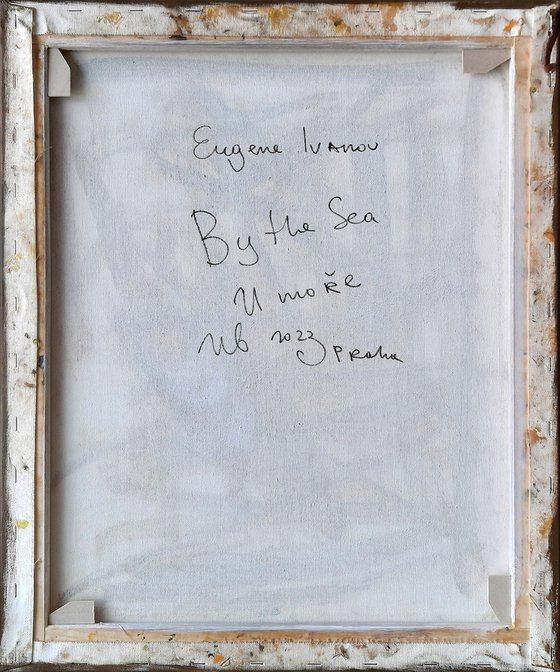 Eugene Ivanov
By the Sea
U moře
Ив 2023 Praha